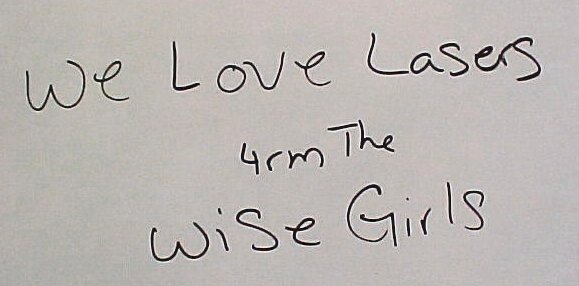 We Love Lasers
4rm The
Wise Girls